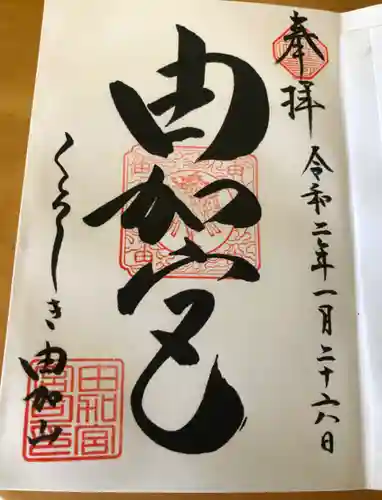 奉拝
令和二年一月二十六日
由加宮
くらしき由加山